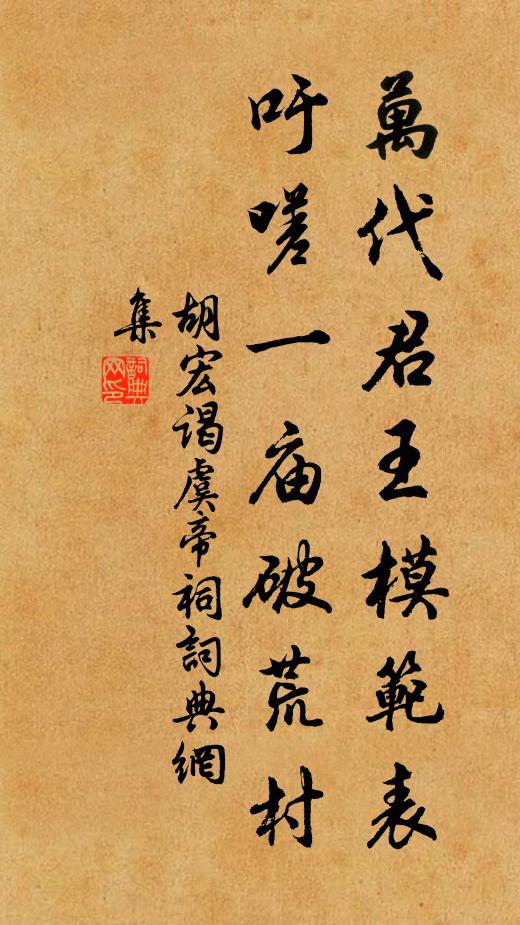 萬代君王模範表
吁嗟一庙破荒村
胡宏谒虞帝祠詞典網
集
詞典
网印